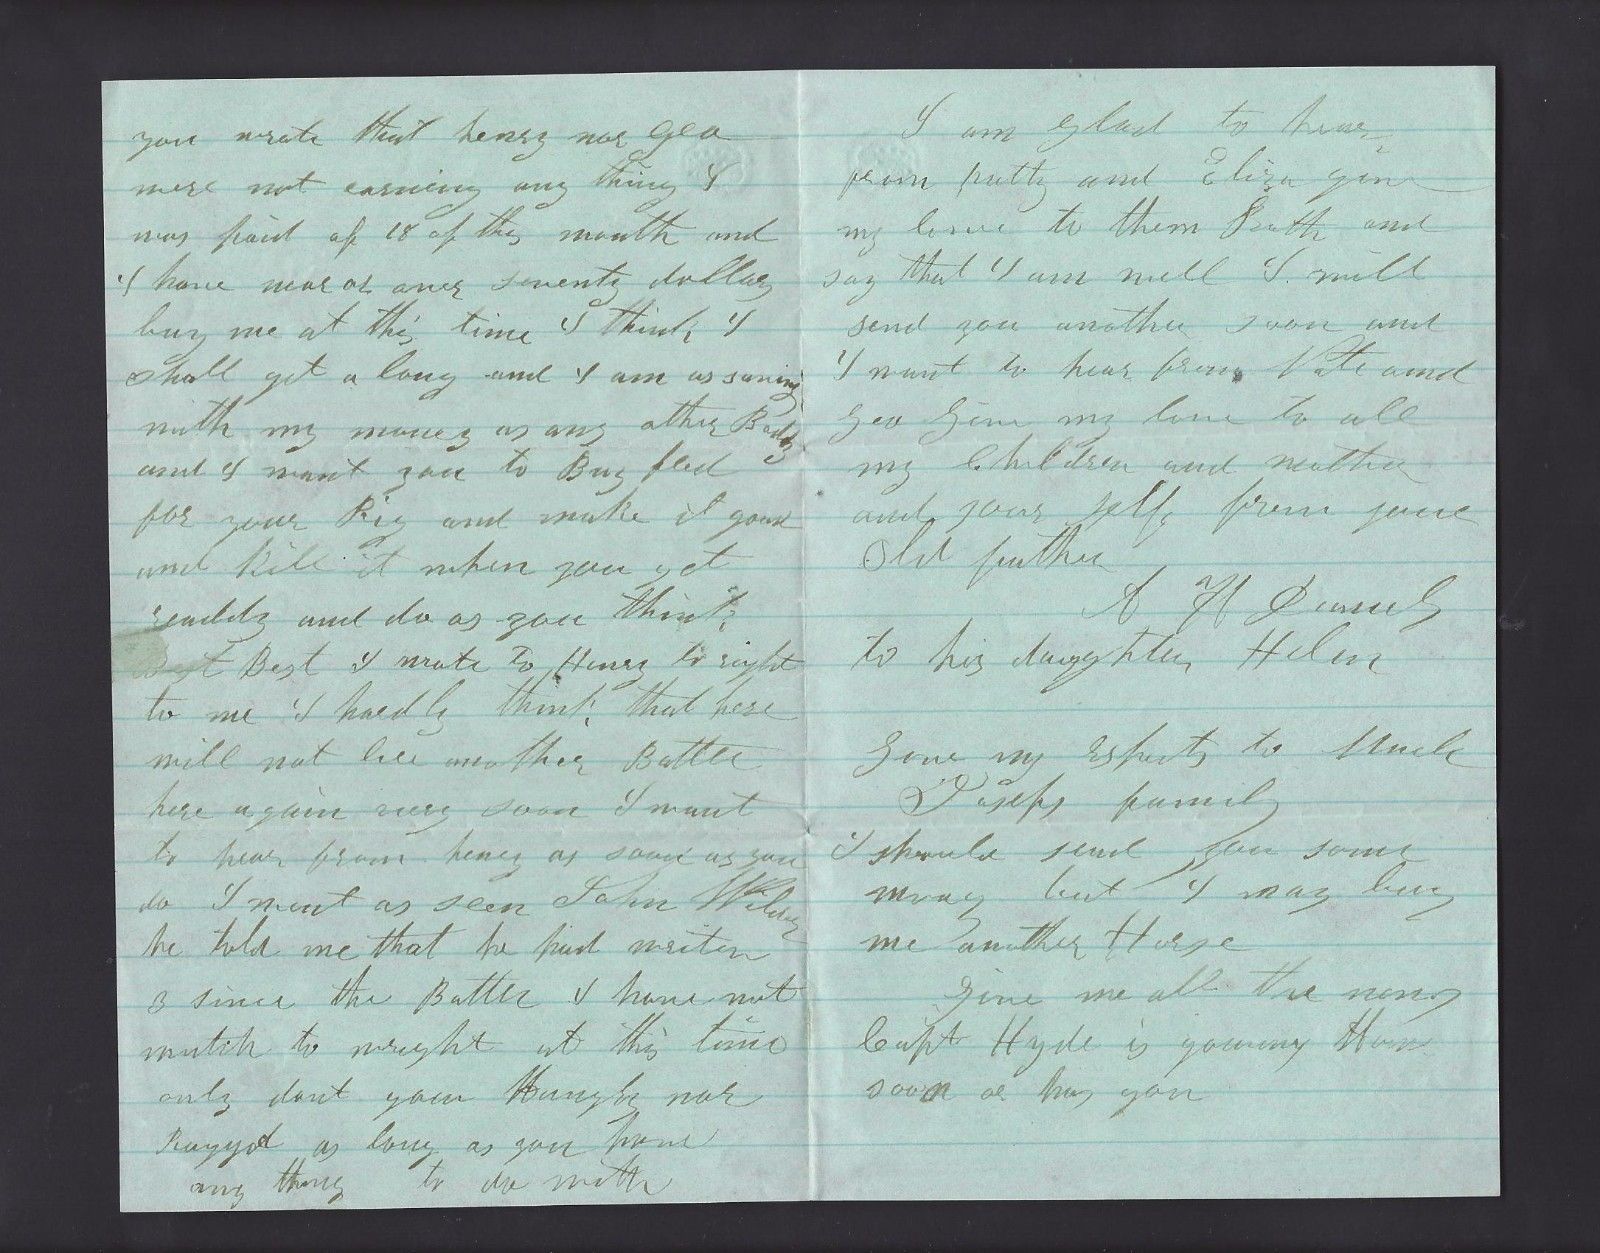 you wrote that henry nor geo
were not earning any thing I
was paid of 18 of this month and
I have near or over seventy dollars
buy me at this time I think I
shall get a long and I am as saving
with my money as any other Body
and I want you to Buy feed
for your Pig and make it good
and kill it when you get
readdy and do as you think
Best Best I wrote to Henry to right
to me I hardly think that here
will not bee another Battle
here again very soon I want
to hear from henry as soon as you
do I went as seen John
he told me that he had writen
3 since the Battle I have not
mutch to wright at this time
only dont your Hungry nor
Raggd as long as you have
any thing to do with
I am glad to hear
from patty and Eliza give
my love to them Both and
say that I am well I will
send you another soon and
I want to hear from Nate and
Geo Give my love to all
my Children and mother
and your self from your
Old father
A H Daniels
to his daughter Helen
Give my respects to Uncle
Josephs family
I should send you some
money but I may buy
me another Horse
Give me all the news
Capt Hyde is going Home
soon or has gon